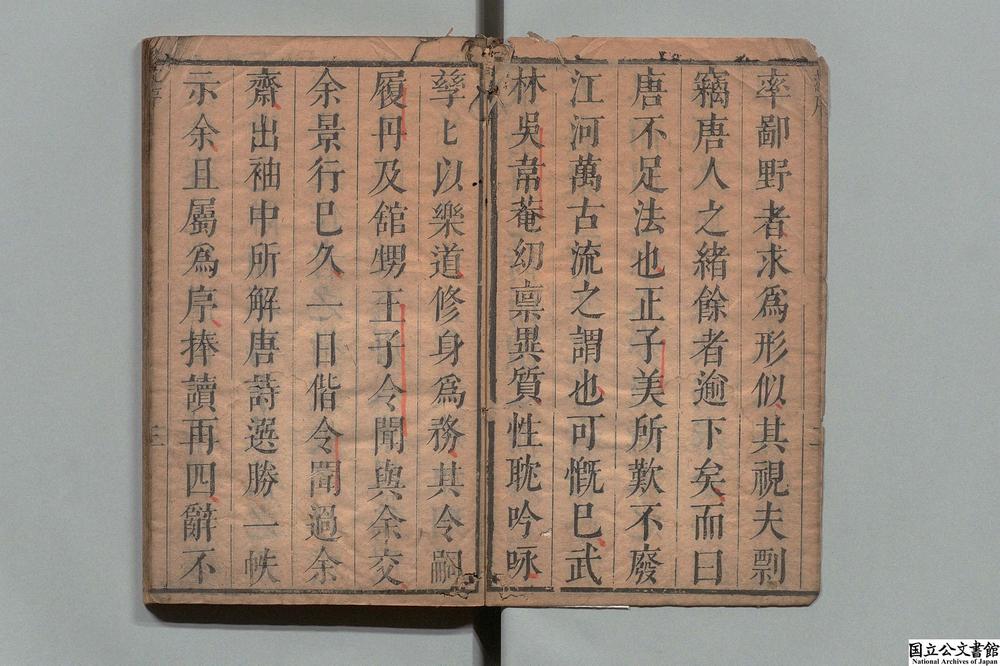 率鄙野者求爲形似其視夫剽
竊唐人之緒餘者逾下矣而曰
唐不足法也正子美所歎不廢
江河萬古流之謂也可慨巳武
林吳韋菴幼禀異質性耽吟咏
孳〻以樂道修身爲務其令嗣
履丹及舘甥王子令聞與余交
余景行巳久一日偕令聞過余
齋出袖中所解唐詩選勝一帙
示余且屬爲序捧讀再四辭不
国立公文書館
National Archives of Japan